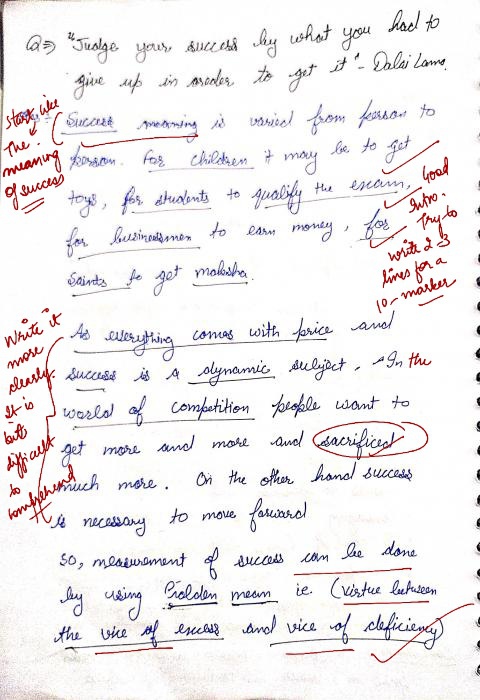 Q⇒ "Judge your success by what you had to
give up in order to get it" - Dalai Lama.
Start like
the
meaning
of success
Success meaning is varied from person to
person. For children it may be to get
toys, for students to qualify the exam,
for businessmen to earn money, for
Saints to get moksha.
Good
Intro.
Try to
write 2-3
lines for a
10-marker
Write it
more
clearly.
It is
bit
difficult
to
comprehend
As everything comes with price and
success is a dynamic subject. In the
world of competition people want to
get more and more and sacrificed
much more. On the other hand success
is necessary to move forward
So, measurement of success can be done
by using Golden mean ie. (virtue between
the vice of excess and vice of deficiency)